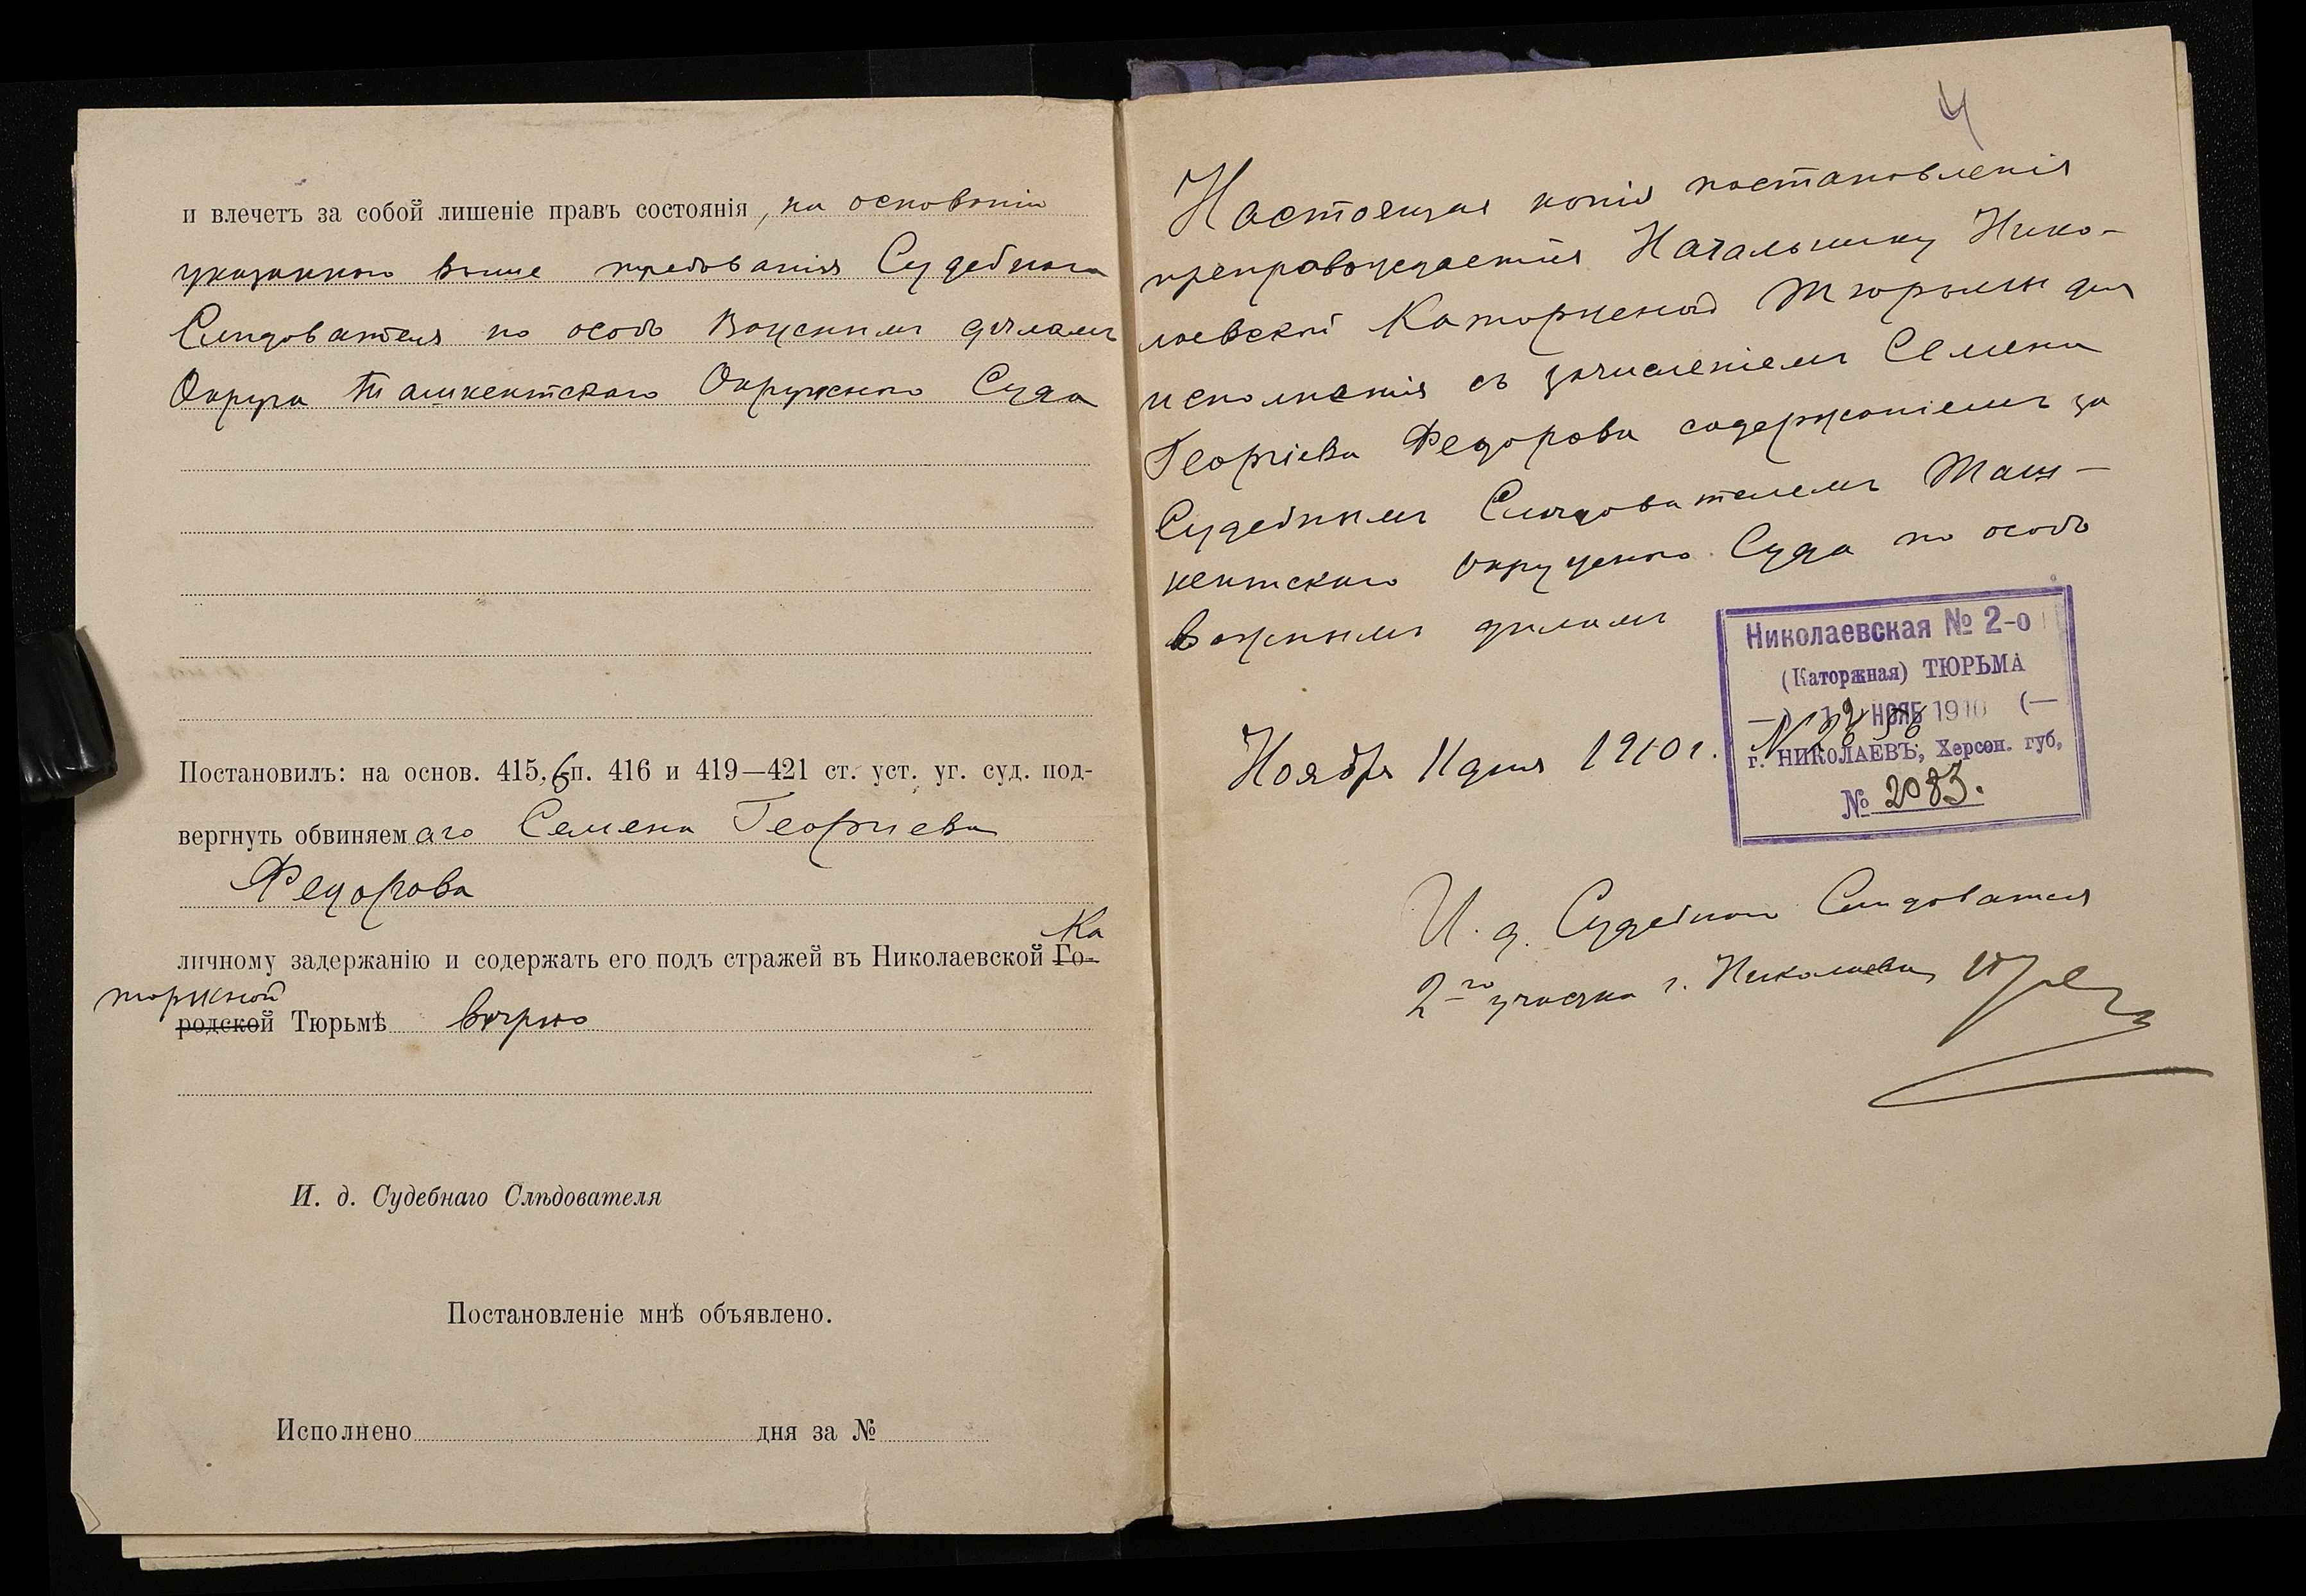 и влечетъ за собой лишеніе правъ состоянія, на основаніи
указаннаго выше требованія Судебнаго
Слѣдователя по особо важнымъ дѣламъ
Округа Ташкентскаго Окружнаго Суда
Постановилъ: на основ. 415, 6 п. 416 и 419—421 ст. уст. уг. суд. под-
вергнуть обвиняемаго Семена Георгиева
Федорова
личному задержанію и содержать его подъ стражей въ Николаевской Го- Ка
торжной
родской Тюрьмѣ вѣрно
И. д. Судебнаго Слѣдователя
Постановленіе мнѣ объявлено.
Исполнено дня за №
4
Настоящая копія постановленія
препровождается Начальнику Нико-
лаевской Каторжной Тюрьмы для
исполненія съ зачисленіемъ Семена
Георгіева Федорова содержаніемъ за
Судебнымъ Слѣдователемъ Таш-
кентскаго Окружнаго Суда по особо
важнымъ дѣламъ
Николаевская № 2-о
(Каторжная) ТЮРЬМА
12 НОЯБ 1910
г. НИКОЛАЕВЪ, Херсон. губ,
№ 2083.
Ноября 11 дня 1910 г. №
И. д. Судебнаго Слѣдователя
2-го участка г. Николаева